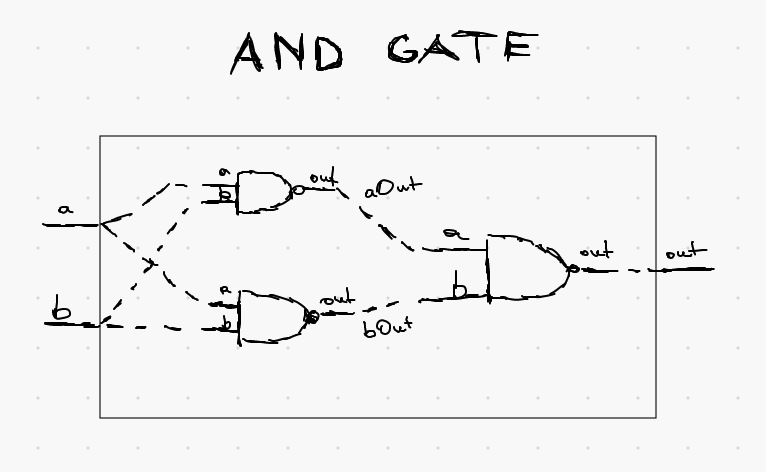 AND GATE
a
b
a
b
out
aOut
a
b
out
bOut
a
b
out
out